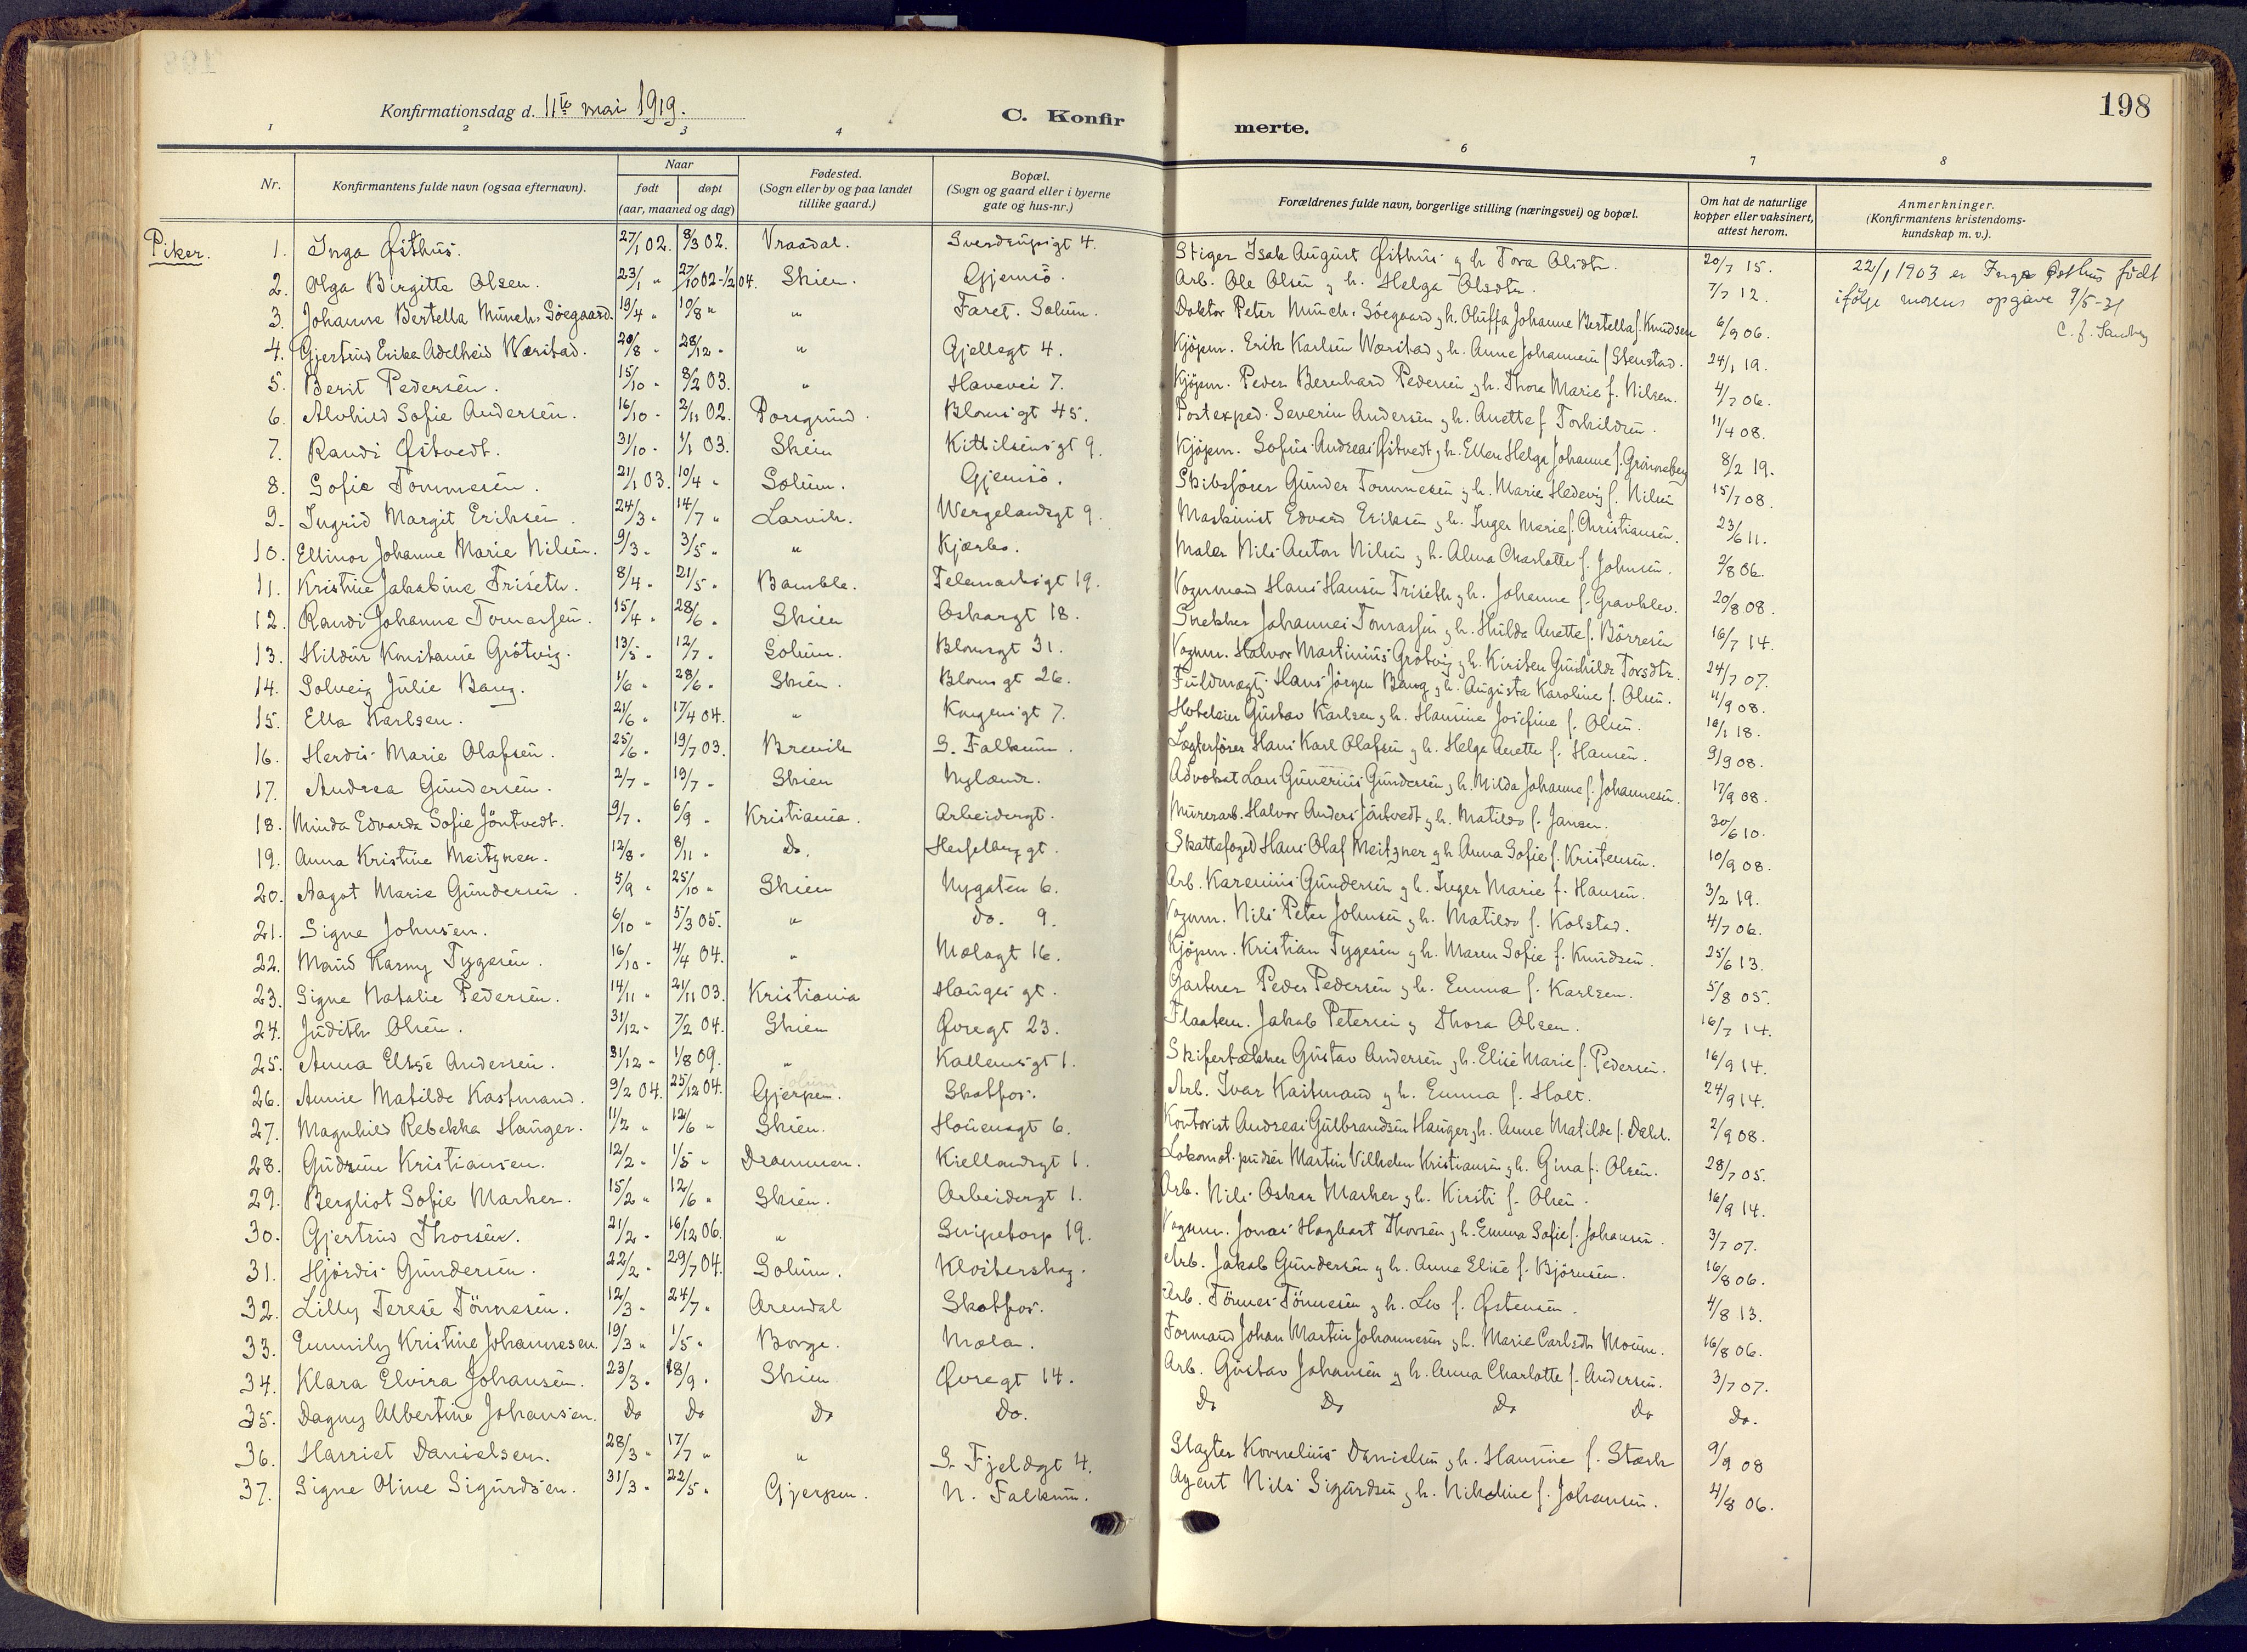 198
Konfirmationsdag d. 11te mai 1919.
C. Konfirmerte.
1 2 3 4 6 7 8
Nr. | Konfirmantens fulde navn (ogsaa efternavn). | Naar født døpt (aar, maaned og dag) | Fødested. (Sogn eller by og paa landet tillike gaard.) | Bopæl. (Sogn og gaard eller i byerne gate og hus-nr.) | Forældrenes fulde navn, borgerlige stilling (næringsvei) og bopæl. | Om hat de naturlige kopper eller vaksinert, attest herom. | Anmerkninger. (Konfirmantens kristendomskundskap m. v.).
Piker.
1. Inga Østhus. 27/1 02. 8/3 02. Vraadal. Sverdrupsgt 4. Stiger Isak August Østhus og h. Tora Olsdtr. 20/7 15. 22/1 1903 er Inga Østhus født
ifølge morens opgave 9/5-31
2. Olga Birgitte Olsen. 23/1 " 27/10 02-1/2 04. Skien. Gjemsö. Arb. Ole Olsen og h. Helga Olsdtr. 7/7 12.
3. Johanne Bertella Münch-Söegaard. 19/4 " 10/8 " " Faret. Solum. Doktor Peter Münch-Söegaard og h. Oluffa Johanne Bertella f. Knudsen 6/9 06.
4. Gjertrud Erika Adelheid Wærstad. 20/8 " 28/12 " " Gjellegt 4. Kjøpm. Erik Karlsen Wærstad og h. Anne Johannesen f. Stenstad. 24/1 19.
5. Berit Pedersen. 15/10 " 8/2 03. " Havevei 7. Kjøpm. Peder Bernhard Pedersen og h. Thora Marie f. Nilsen. 4/7 06.
6. Alvhild Sofie Andersen. 16/10 " 2/11 02. Porsgrund. Blomsgt 45. Postexped. Severin Andersen og h. Anette f. Torkildsen. 11/4 08.
7. Randi Østvedt. 31/10 " 1/1 03. Skien Kittilsensgt 9. Kjøpm. Sofus Andreas Østvedt og h. Ellen Helga Johanne f. Grönneberg 8/2 19.
8. Sofie Tommesen. 21/1 03. 10/4 " Solum. Gjemsö. Skibsfører Gunder Tommesen og h. Marie Hedevig f. Nilsen 15/7 08.
9. Ingrid Margit Eriksen. 24/3 " 14/7 " Larvik. Wergelandsgt 9. Maskinist Edvard Eriksen og h. Inger Marie f. Christiansen. 23/6 11.
10. Ellinor Johanne Marie Nilsen. 9/3 " 3/5 " " Kjærbo. Maler Nils Anton Nilsen og h. Alma Charlotte f. Johnsen. 2/8 06.
11. Kristine Jakobine Triseth. 8/4 " 21/5 " Bamble. Telemarksgt 19. Vognmand Hans Hansen Triseth og h. Johanne f. Gravklev. 20/8 08.
12. Randi Johanne Tomassen. 15/4 " 28/6 " Skien Oskarsgt 18. Snekker Johannes Tomassen og h. Hulda Anette f. Börresen 16/7 14.
13. Hildur Konstanse Grötvig. 13/5 " 12/7 " Solum. Blomsgt 31. Vognm. Halvor Martinius Grötvig og h. Kirsten Gunhilde Torsdtr. 24/7 07.
14. Solveig Julie Bang. 1/6 " 28/6 " Skien. Blomsgt 26. Fuldmægt. Hans Jörgen Bang og h. Augusta Karoline f. Olsen. 11/9 08.
15. Ella Karlsen. 21/6 " 17/4 04. " Kongensgt 7. Hoteleier Gustav Karlsen og h. Hansine Josefine f. Olsen. 16/1 18.
16. Herdis Marie Olafsen. 25/6 " 19/7 03. Brevik S. Falkum. Lægterfører Hans Karl Olafsen og h. Helga Anette f. Hansen. 9/9 08.
17. Andrea Gundersen. 2/7 " 19/7 " Skien Nylænde. Advokat Lars Gunerius Gundersen og h. Milda Johanne f. Johannesen. 17/9 08.
18. Minda Edvarda Sofie Jöntvedt. 9/7 " 6/9 " Kristiania. Arbeidergt. Murerarb. Halvor Anders Jöntvedt og h. Matilde f. Jansen. 30/6 10.
19. Anna Kristine Meitzner. 12/8 " 8/11 " Do. Hesselberggt. Skattefoged Hans Olaf Meitzner og h. Anna Sofie f. Kristensen. 10/9 08.
20. Aagot Marie Gundersen. 5/9 " 25/10 " Skien Nygaten 6. Arb. Karenius Gundersen og h. Inger Marie f. Hansen. 3/2 19.
21. Signe Johnsen. 6/10 " 5/3 05. " do. 9. Vognm. Nils Peter Johnsen og h. Matilde f. Kolstad. 4/7 06.
22. Maud Karny Tygesen. 16/10 " 4/4 04. " Mælagt 16. Kjöpm. Kristian Tygesen og h. Maren Sofie f. Knudsen. 25/6 13.
23. Signe Natalie Pedersen. 14/11 " 21/11 03. Kristiania Hauges gt. Gartner Peder Pedersen og h. Emma f. Karlsen. 5/8 05.
24. Judith Olsen. 31/12 " 7/2 04. Skien Øvregt 23. Flaatem. Jakob Petersen og Thora Olsen. 16/7 14.
25. Anna Elise Andersen. 31/12 " 1/8 09. " Kallemsgt 1. Skifertækker Gustav Andersen og h. Elise Marie f. Pedersen. 16/9 14.
26. Annie Matilde Kastmand. 9/2 04. 25/12 04. Gjerpen. Skotfos. Arb. Ivar Kastmand og h. Emma f. Holt. 24/9 14.
27. Magnhild Rebekka Hauger. 11/2 " 12/6 " Skien. Houensgt 6. Kontorist Andreas Gulbrandsen Hauger og h. Anne Matilde f. Dahl. 2/9 08.
28. Gudrun Kristiansen. 12/2 " 1/5 " Drammen. Kiellandsgt 1. Lokomot. pudser Martin Vilhelm Kristiansen og h. Gina f. Olsen. 28/7 05.
29. Bergliot Sofie Marker. 15/2 " 12/6 " Skien. Arbeidergt 1. Arb. Nils Oskar Marker og h. Kirsti f. Olsen. 16/9 14.
30. Gjertrud Thorsen. 21/2 " 16/12 06. " Snipetorp 19. Vognm. Jonas Hagbart Thorsen og h. Emma Sofie f. Johansen. 3/7 07.
31. Hjördis Gundersen. 22/2 " 29/7 04. Solum. Klosterskog. Arb. Jakob Gundersen og h. Anna Elise f. Björnsen. 16/8 06.
32. Lilly Terese Tönnesen. 12/3 " 24/7 " Arendal Skotfos. Arb. Tönnes Tönnesen og h. Lea f. Østensen. 4/8 13.
33. Emmily Kristine Johannesen. 19/3 " 1/5 " Borge. Mæla. Formand Johan Martin Johannesen og h. Marie Carlsdtr Moum. 16/8 06.
34. Klara Elvira Johansen. 23/3 " 18/9 " Skien. Øvregt 14. Arb. Gustav Johansen og h. Anna Charlotte f. Andersen. 3/7 07.
35. Dagny Albertine Johansen. Do Do Do Do. Do Do Do Do Do.
36. Harriet Danielsen. 28/3 " 17/7 " " S. Fjeldgt 4. Slagter Kornelius Danielsen og h. Hansine f. Stærk 9/9 08
37. Signe Oline Sigurdsen. 31/3 " 22/5 " Gjerpen. N. Falkum. Agent Nils Sigurdsen og h. Nikoline f. Johansen. 4/8 06.